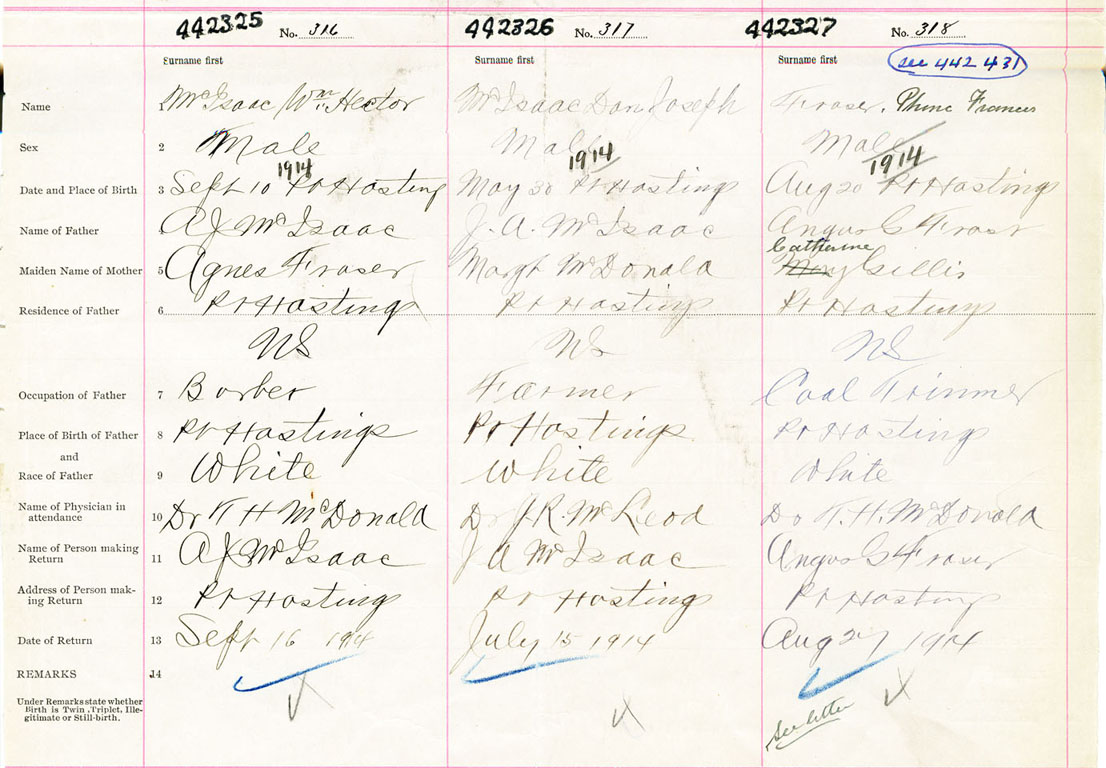 442325 No. 316 442326 No. 317 442327 No. 318
Surname first Surname first Surname first see 442 431
Name 1 McIsaac Wm. Hector McIsaac Dan Joseph Fraser, Phine Frances
Sex 2 Male Male Male
1914 1914 1914
Date and Place of Birth 3 Sept 10 Pt Hasting May 30 Pt Hastings Aug 20 Pt Hastings
Name of Father 4 A J McIsaac J. A. McIsaac Angus G Fraser
Catherine
Maiden Name of Mother 5 Agnes Fraser Margt McDonald Mary Gillis
Residence of Father 6 Pt Hastings Pt Hastings Pt Hastings
NS NS NS
Occupation of Father 7 Barber Farmer Coal Trimmer
Place of Birth of Father 8 Pt Hastings Pt Hastings Pt Hastings
and
Race of Father 9 White White White
Name of Physician in
attendance 10 Dr McDonald Dr J. R. McLeod Dr McDonald
Name of Person making
Return 11 A J McIsaac J A McIsaac Angus G Fraser
Address of Person mak-
ing Return 12 Pt Hastings Pt Hastings Pt Hastings
Date of Return 13 Sept 16 1914 July 15 1914 Aug 27 1914
REMARKS 14
Under Remarks state whether
Birth is Twin, Triplet, Ille-
gitimate or Still-birth.
see letter